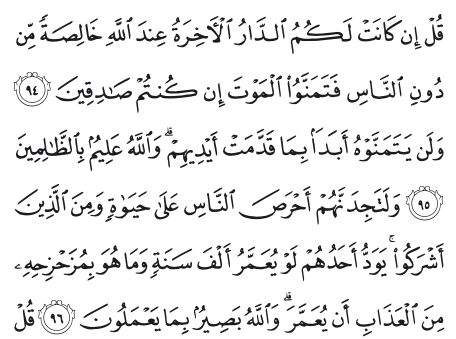 قُلْ إِن كَانَتْ لَكُمُ ٱلدَّارُ ٱلْءَاخِرَةُ عِندَ ٱللَّهِ خَالِصَةً مِّن
دُونِ ٱلنَّاسِ فَتَمَنَّوُا۟ ٱلْمَوْتَ إِن كُنتُمْ صَٰدِقِينَ ٩٤
وَلَن يَتَمَنَّوْهُ أَبَدًۢا بِمَا قَدَّمَتْ أَيْدِيهِمْ ۗ وَٱللَّهُ عَلِيمٌۢ بِٱلظَّٰلِمِينَ
٩٥ وَلَتَجِدَنَّهُمْ أَحْرَصَ ٱلنَّاسِ عَلَىٰ حَيَوٰةٍ وَمِنَ ٱلَّذِينَ
أَشْرَكُوا۟ ۚ يَوَدُّ أَحَدُهُمْ لَوْ يُعَمَّرُ أَلْفَ سَنَةٍ وَمَا هُوَ بِمُزَحْزِحِهِۦ
مِنَ ٱلْعَذَابِ أَن يُعَمَّرَ ۗ وَٱللَّهُ بَصِيرٌۢ بِمَا يَعْمَلُونَ ٩٦ قُلْ